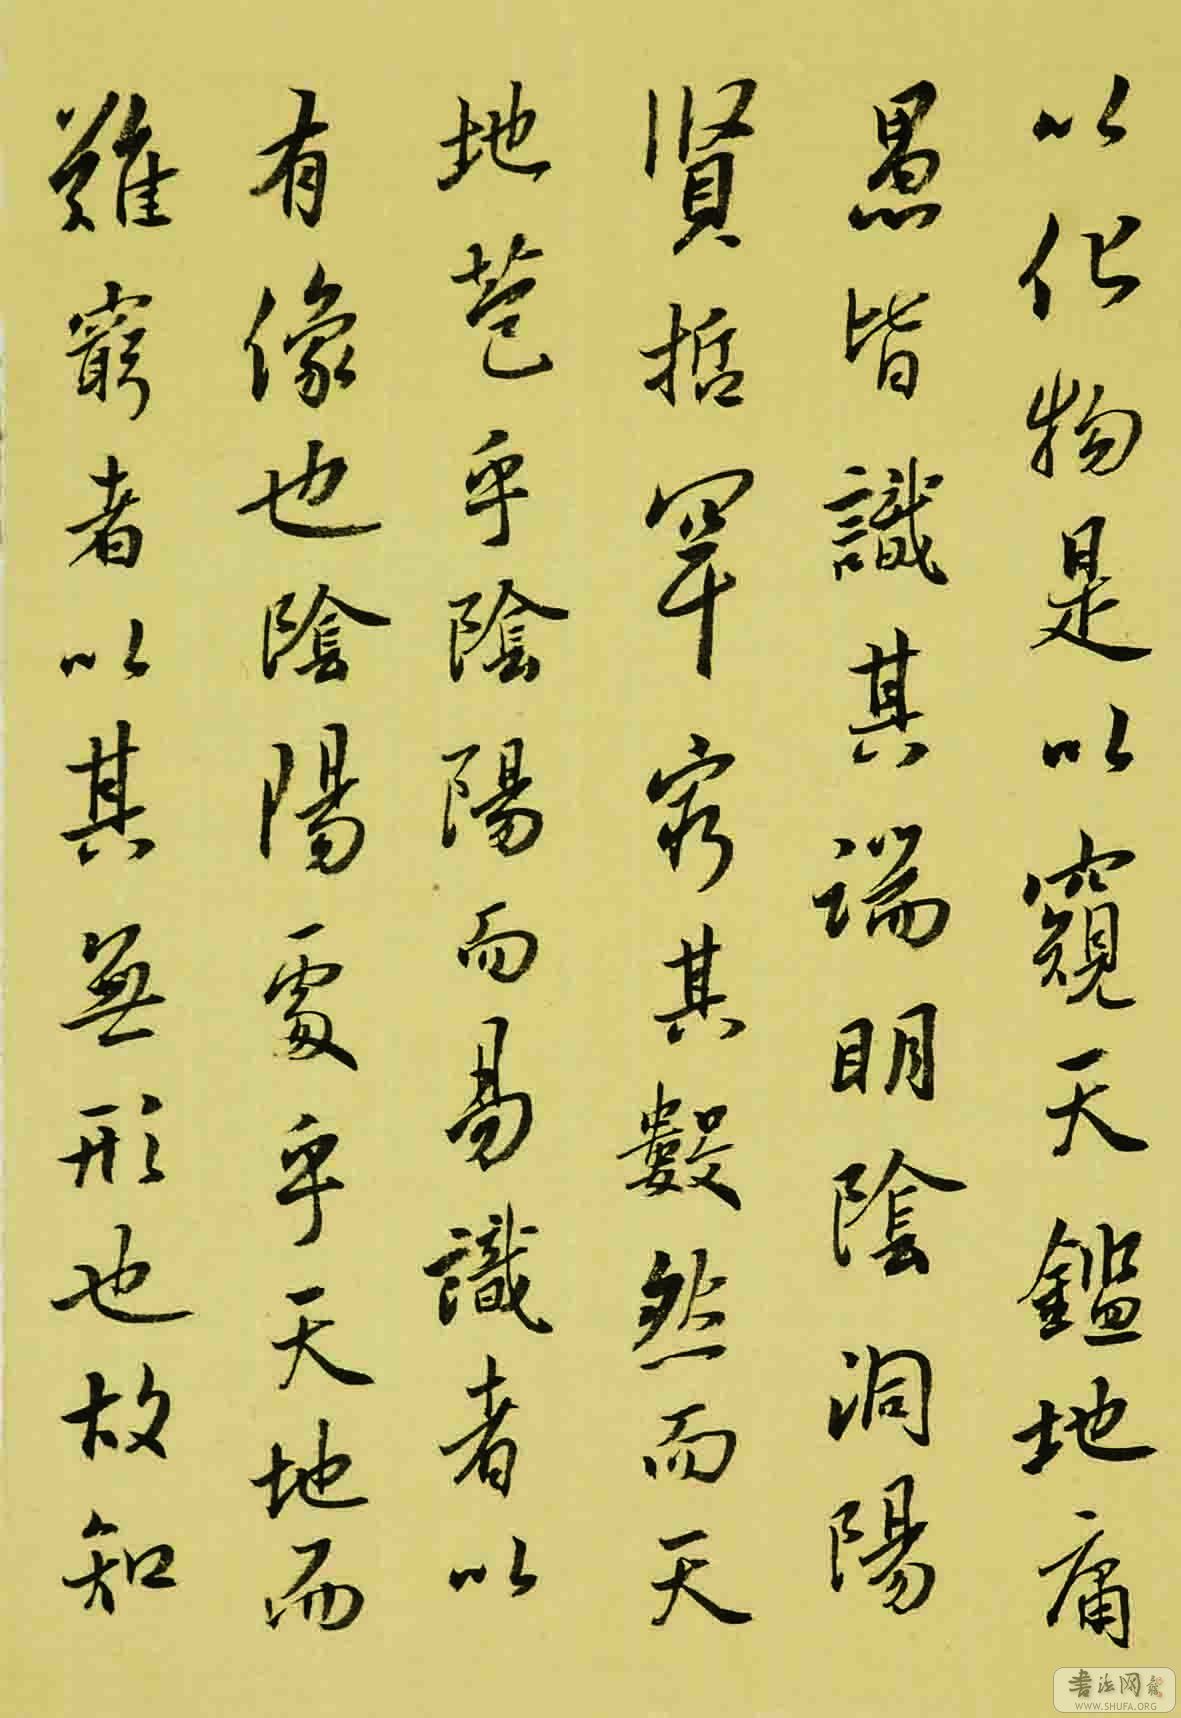 以化物是以窺天鑑地庸
愚皆識其端明陰洞陽
賢哲罕窮其數然而天
地苞乎陰陽而易識者以
有像也陰陽處乎天地而
難窮者以其無形也故知
書法网
WWW.SHUFA.ORG